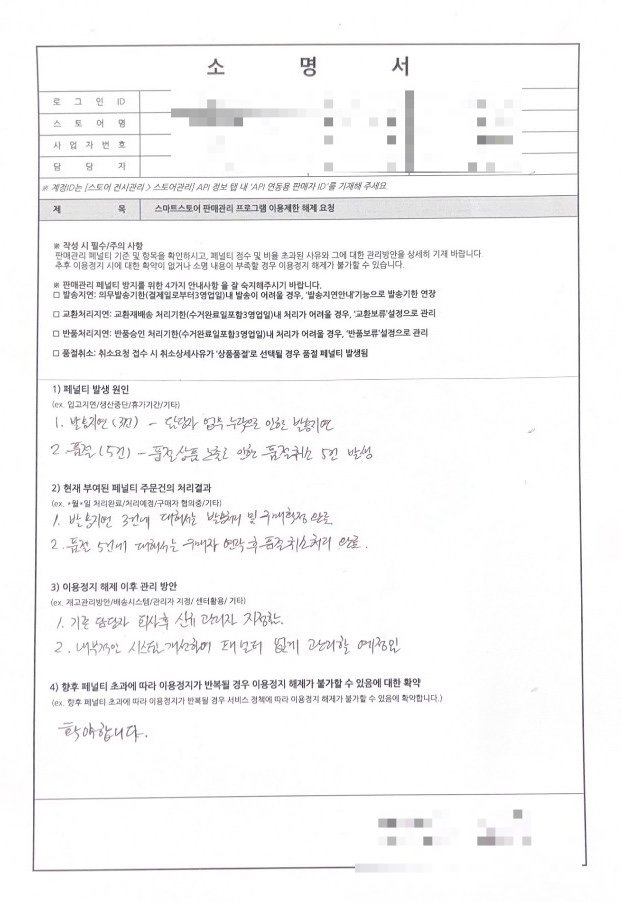 소 명 서
로 그 인 ID
스 토 어 명
사 업 자 번 호
담 당 자
※ 계정ID는 [스토어 전시관리 > 스토어관리] API 정보 탭 내 'API 연동용 판매자 ID'를 기재해 주세요.
제 목 스마트스토어 판매관리 프로그램 이용제한 해제 요청
※ 작성 시 필수/주의 사항
판매관리 페널티 기준 및 항목을 확인하시고, 페널티 점수 및 비율 초과된 사유와 그에 대한 관리방안을 상세히 기재 바랍니다.
추후 이용정지 시에 대한 확약이 없거나 소명 내용이 부족할 경우 이용정지 해제가 불가할 수 있습니다.
※ 판매관리 페널티 방지를 위한 4가지 안내사항 을 잘 숙지해주시기 바랍니다.
□ 발송지연: 의무발송기한(결제일로부터3영업일)내 발송이 어려울 경우, '발송지연안내'기능으로 발송기한 연장
□ 교환처리지연: 교환재배송 처리기한(수거완료일포함3영업일)내 처리가 어려울 경우, '교환보류'설정으로 관리
□ 반품처리지연: 반품승인 처리기한(수거완료일포함3영업일)내 처리가 어려울 경우, '반품보류'설정으로 관리
□ 품절취소: 취소요청 접수 시 취소상세사유가 '상품품절'로 선택될 경우 품절 페널티 발생됨
1) 페널티 발생 원인
(ex. 입고지연/생산중단/휴가기간/기타)
1. 발송지연 (3건) - 담당자 업무 누락으로 인한 발송지연
2. 품절 (5건) - 품절상품 노출로 인한 품절취소 5건 발생
2) 현재 부여된 페널티 주문건의 처리결과
(ex. *월*일 처리완료/처리예정/구매자 협의중/기타)
1. 발송지연 3건에 대해서는 발송처리 및 구매확정 완료.
2. 품절 5건에 대해서는 구매자 연락 후 품절취소처리 완료.
3) 이용정지 해제 이후 관리 방안
(ex. 재고관리방안/배송시스템/관리자 지정/ 센터활용/ 기타)
1. 기존 담당자 퇴사후 신규 관리자 지정함.
2. 내부적인 시스템 개선하여 패널티 없게 관리할 예정임
4) 향후 페널티 초과에 따라 이용정지가 반복될 경우 이용정지 해제가 불가할 수 있음에 대한 확약
(ex. 향후 페널티 초과에 따라 이용정지가 반복될 경우 서비스 정책에 따라 이용정지 해제가 불가할 수 있음에 확약합니다.)
확약합니다.